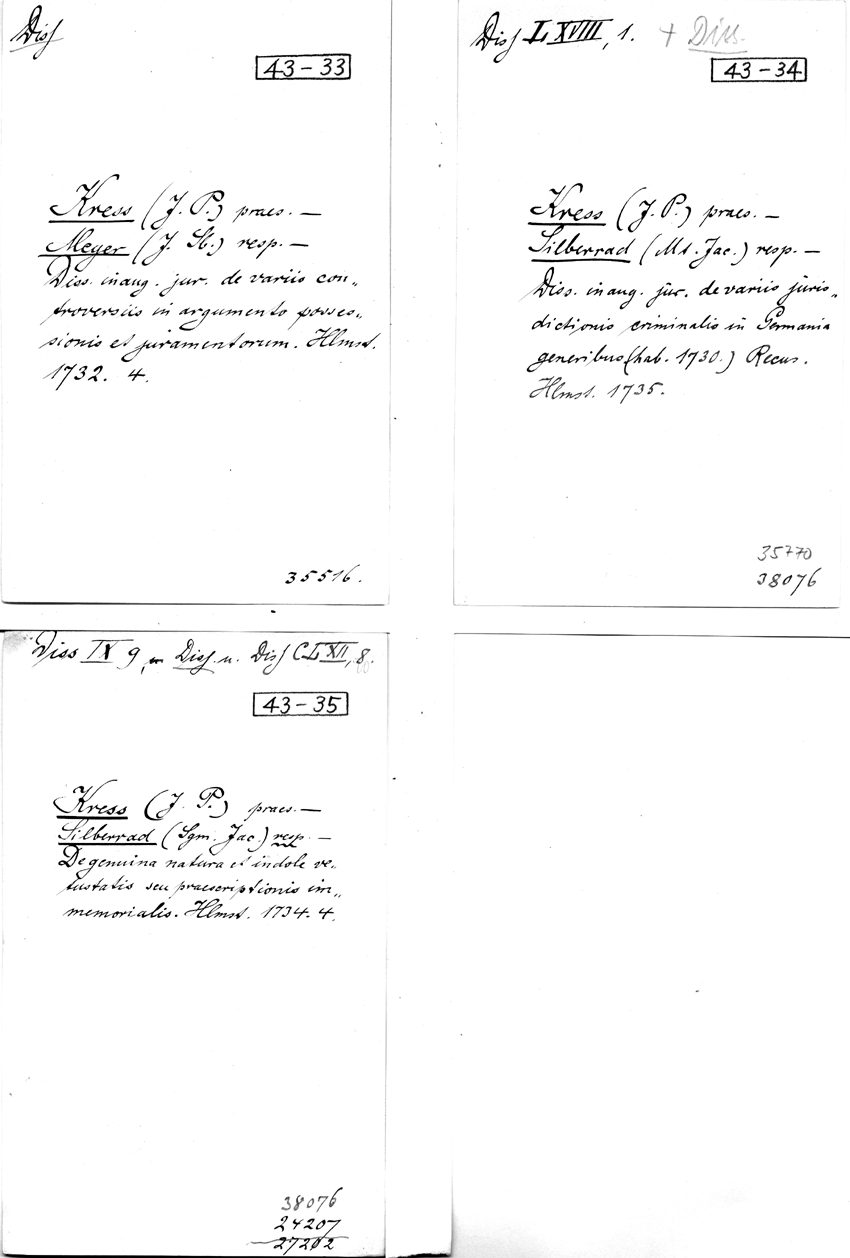 Diss
43-33
Kress (J. P.) praes. —
Meyer (J. Sb.) resp. —
Diss. inaug. jur. de variis con„
troversiis in argumento posses„
sionis et juramentorum. Hlmst.
1732. 4.
35516.
Diss LXVIII, 1. + Diss.
43-34
Kress (J. P.) praes. —
Silberrad (Mt. Jac.) resp. —
Diss. inaug. jur. de variis juris„
dictionis criminalis in Germania
generibus (hab. 1730.) Recus.
Hlmst. 1735.
35770
38076
Diss IX 9, Diss. u. Diss CLXII, 8.
43-35
Kress (J. P.) praes. —
Silberrad (Sgm. Jac.) resp. —
De genuina natura et indole ve„
tustatis seu praescriptionis im„
memorialis. Hlmst. 1734. 4.
38076
24207
27202